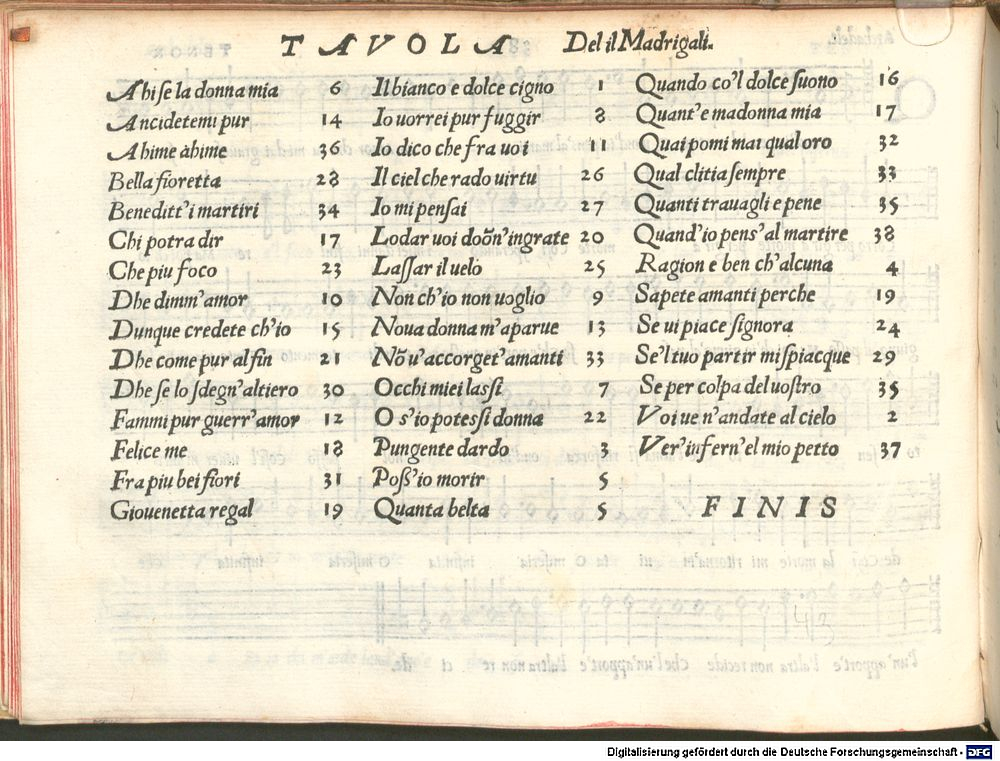 TAVOLA Del il Madrigali.
Ahi se la donna mia 6
Ancidetemi pur 14
Ahime ahime 36
Bella fioretta 28
Beneditt'i martiri 34
Chi potra dir 17
Che piu foco 23
Dhe dimm'amor 10
Dunque credete ch'io 15
Dhe come pur al fin 21
Dhe se lo sdegn'altiero 30
Fammi pur guerr'amor 12
Felice me 18
Fra piu bei fiori 31
Giouenetta regal 19
Il bianco e dolce cigno 1
Io uorrei pur fuggir 8
Io dico che fra uoi 11
Il ciel che rado uirtu 26
Io mi pensai 27
Lodar uoi doñ'ingrate 20
Lassar il uelo 25
Non ch'io non uoglio 9
Noua donna m'aparue 13
Nõ u'accorget'amanti 33
Occhi miei lassi 7
O s'io potessi donna 22
Pungente dardo 3
Poss'io morir 5
Quanta belta 5
Quando co'l dolce suono 16
Quant'e madonna mia 17
Quai pomi mai qual oro 32
Qual clitia sempre 33
Quanti trauagli e pene 35
Quand'io pens'al martire 38
Ragion e ben ch'alcuna 4
Sapete amanti perche 19
Se ui piace signora 24
Se'l tuo partir mi spiacque 29
Se per colpa del uostro 35
Voi ue n'andate al cielo 2
Ver'infern'el mio petto 37
FINIS
Digitalisierung gefördert durch die Deutsche Forschungsgemeinschaft - DFG